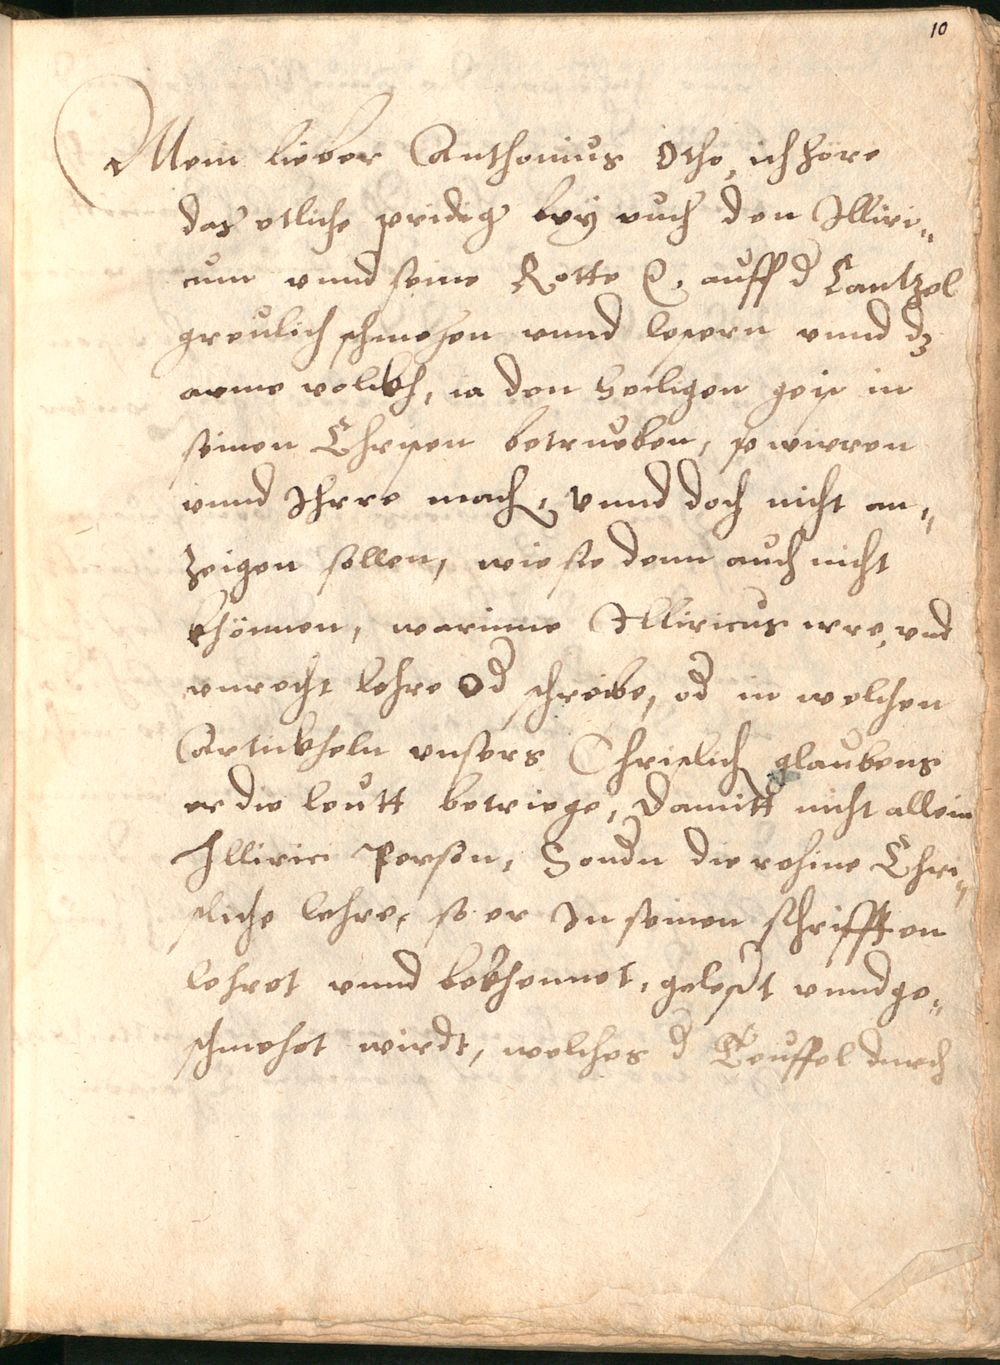 10
Mein lieber Anthonius Otho, ich hore
das etliche predig bey euch den Illiri„
cum vnnd seine Rotte ꝛc. auff d Cantzel
greulich schmehen vnnd lestern vnnd dz
arme volckh, ia den heiligen geist in
seinen Christen betrueben, so wirren
vnnd Ihrre mach, Vnnd doch nicht an„
zeigen sollen, wie sie denn auch nicht
khönnen, warinne Illiricus irre, vnd
vnrecht lehre Od schreibe, od in welchen
Artickheln vnsers Christlich glaubens
er die leutt betriege, Damitt nicht allein
Illirici Person, Sondn die rehine Chri„
stliche lehre, so er In seinen schrifften
lehret vnnd bekhennet, gelestt vnnd ge„
schmehet wirdt, welches d Teuffel durch